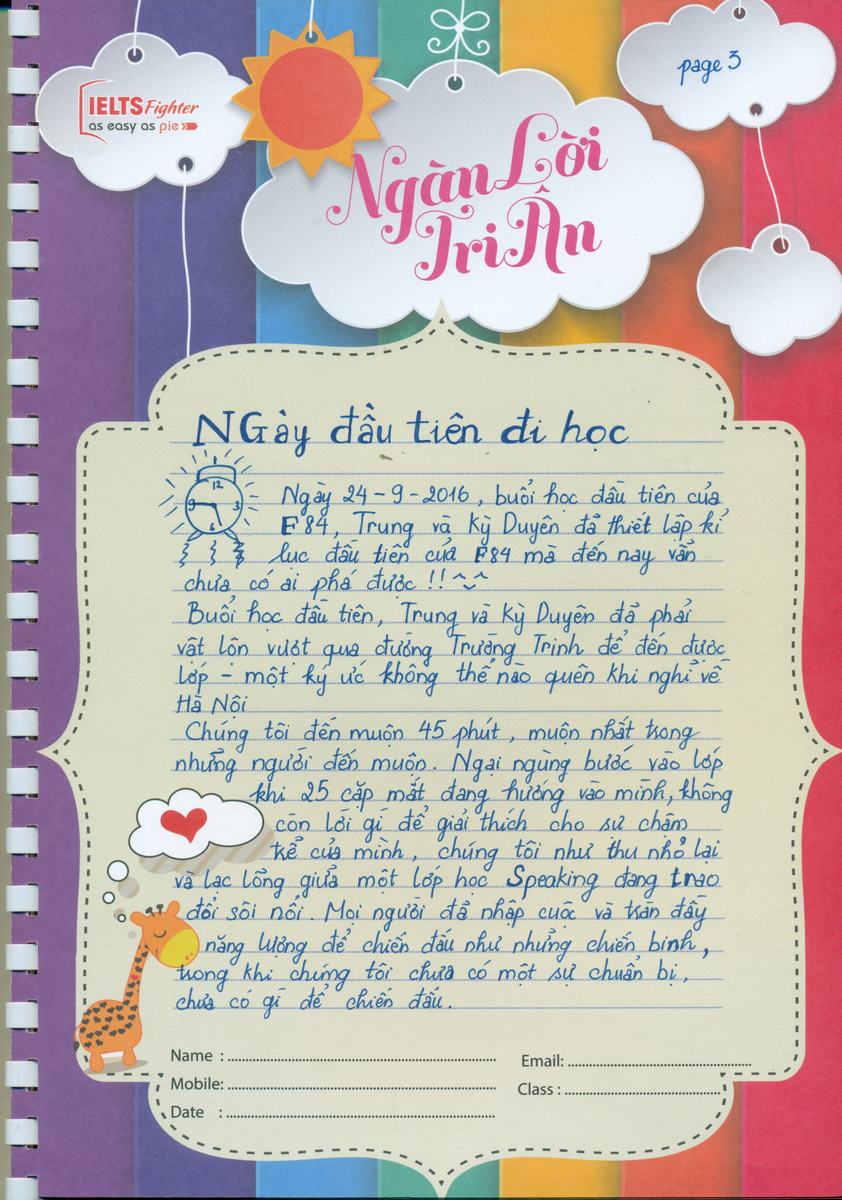 IELTS Fighter
as easy as pie
page 3
Ngàn Lời
Tri Ân
NGày đầu tiên đi học
12
9
3
6
Ngày 24-9-2016, buổi học đầu tiên của
F84, Trung và Kỳ Duyên đã thiết lập kỉ
lục đầu tiên của F84 mà đến nay vẫn
chưa có ai phá được !! ^_^
Buổi học đầu tiên, Trung và Kỳ Duyên đã phải
vật lộn vượt qua đường Trường Trinh để đến được
lớp - một ký ức không thể nào quên khi nghỉ về
Hà Nội
Chúng tôi đến muộn 45 phút, muộn nhất trong
những người đến muộn. Ngại ngùng bước vào lớp
khi 25 cặp mắt đang hướng vào mình, không
còn lời gì để giải thích cho sự chậm
trễ của mình, chúng tôi như thu nhỏ lại
và lạc lõng giữa một lớp học Speaking đang trao
đổi sôi nổi. Mọi người đã nhập cuộc và tràn đầy
năng lượng để chiến đấu như những chiến binh,
trong khi chúng tôi chưa có một sự chuẩn bị,
chưa có gì để chiến đấu.
Name :
Email:
Mobile:
Class :
Date :